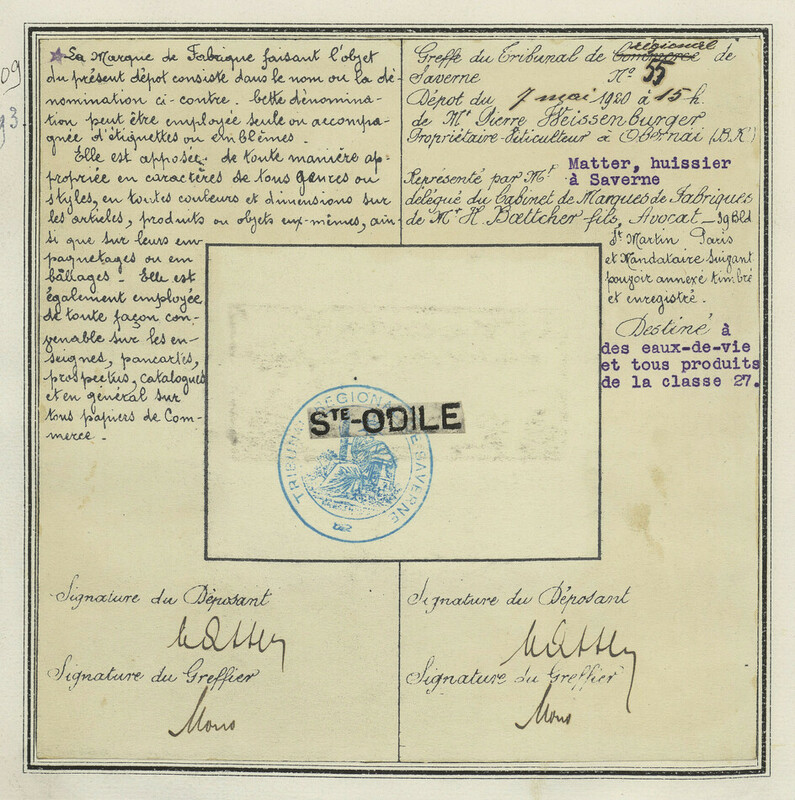 09
93
La Marque de Fabrique faisant l'objet
du présent dépot consiste dans le nom ou la dé-
nomination ci-contre. Cette dénomina-
tion peut être employée seule ou accompa-
gnée d'étiquettes ou emblêmes.
Elle est apposée de toute manière ap-
propriée en caractères de tous genres ou
styles, en toutes couleurs et dimensions sur
les articles, produits ou objets eux-mêmes, ain-
si que sur leurs em
paquetages ou em
bâllages - Elle est
également employée
de toute façon con-
venable sur les en-
seignes, pancartes,
prospectus, catalogues
et en général sur
tous papiers de Com-
merce.
Greffe du Tribunal de Commerce régional de
Saverne No 55
Dépot du 7 mai 1920 à 15 h.
de Mr Pierre Weissenburger
Propriétaire-Viticulteur à Obernai (B.R.)
Représenté par Mr Matter, huissier
à Saverne
délégué du Cabinet de Marques de Fabriques
de Mr H. Bœttcher fils, Avocat - 39 Bld
St Martin Paris
et Mandataire suivant
pouvoir annexé timbré
et enregistré.
Destiné à
des eaux-de-vie
et tous produits
de la classe 27.
STE-ODILE
TRIBUNAL REGIONAL DE SAVERNE
Signature du Déposant
Matter
Signature du Greffier
Signature du Déposant
Matter
Signature du Greffier